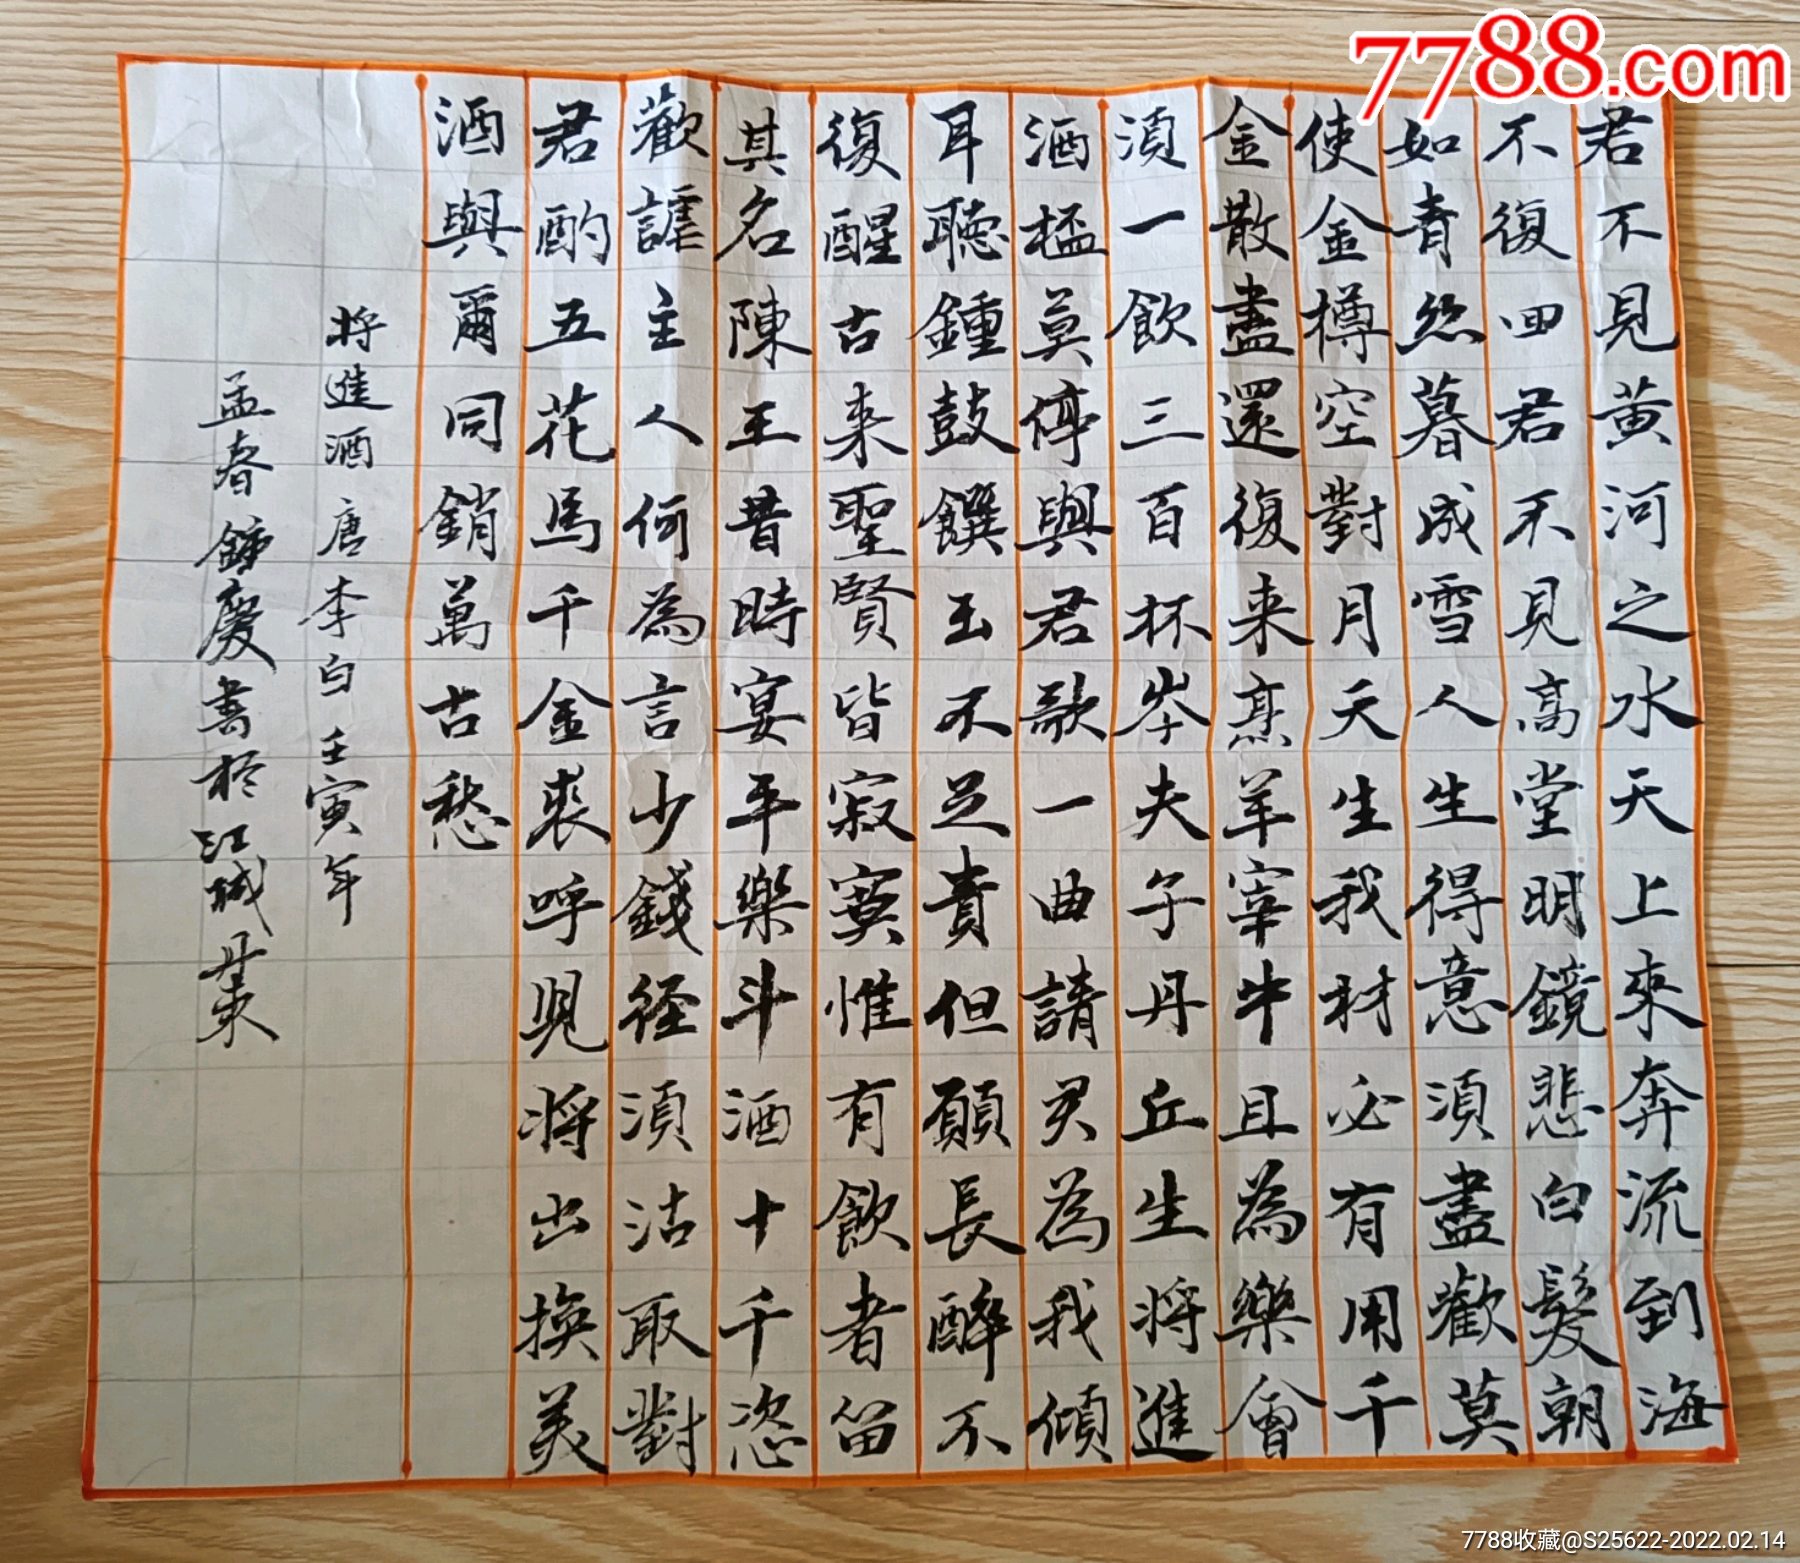 7788.com
君不見黃河之水天上來奔流到海
不復回君不見高堂明鏡悲白髮朝
如青絲暮成雪人生得意須盡歡莫
使金樽空對月天生我材必有用千
金散盡還復来烹羊宰牛且為樂會
須一飲三百杯岑夫子丹丘生将進
酒莫停與君歌一曲請君為我傾
耳聽鍾鼓饌玉不足貴但願長醉不
復醒古来聖賢皆寂寞惟有飲者留
其名陳王昔時宴平樂斗酒十千恣
歡謔主人何為言少錢径須沽取對
君酌五花馬千金裘呼児将出換美
酒與爾同銷萬古愁
将進酒唐李白壬寅年
孟春慶書於江城丹東
7788收藏@S25622-2022.02.14